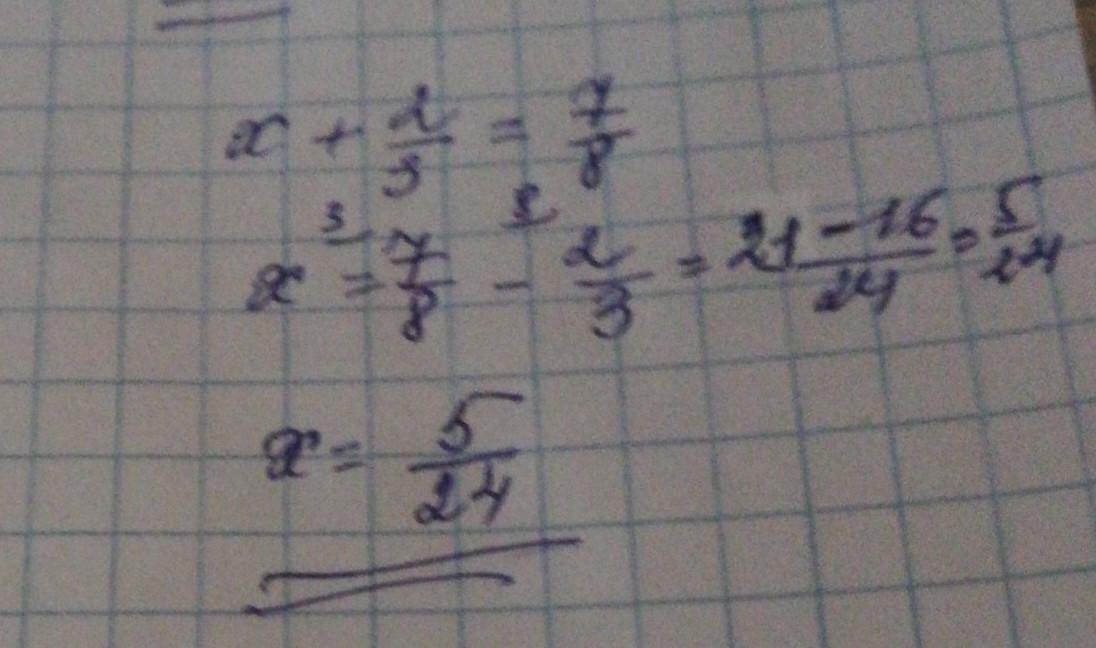 x + 2/3 = 7/8
x = ³⁻7/8 - ⁸⁻2/3 = 21-16/24 = 5/24
x = 5/24